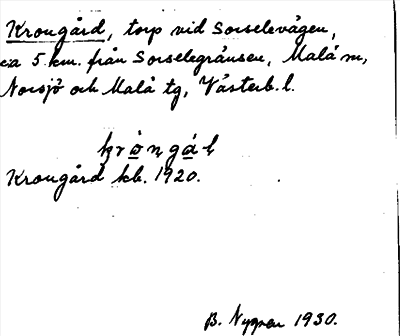 Krongård, torp vid Sorselevägen,
ca 5 km. från Sorselegränsen, Malå m,
Norsjö och Malå tg, Västerb. l.
krånga̱ɫ
Krongård kb. 1920.
B. Nygren 1930.